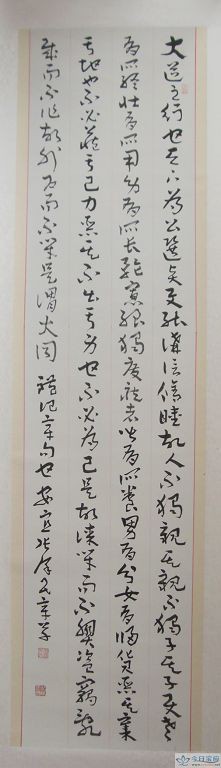 大道之行也天下為公選賢與能講信修睦故人不獨親其親不獨子其子使老
有所終壯有所用幼有所長矜寡孤獨廢疾者皆有所養男有分女有歸貨惡其棄
于地也不必藏于己力惡其不出于身也不必為己是故謀閉而不興盜竊亂
賊而不作故外戶而不閉是謂大同 禮記章句也 安宜
今日宝应